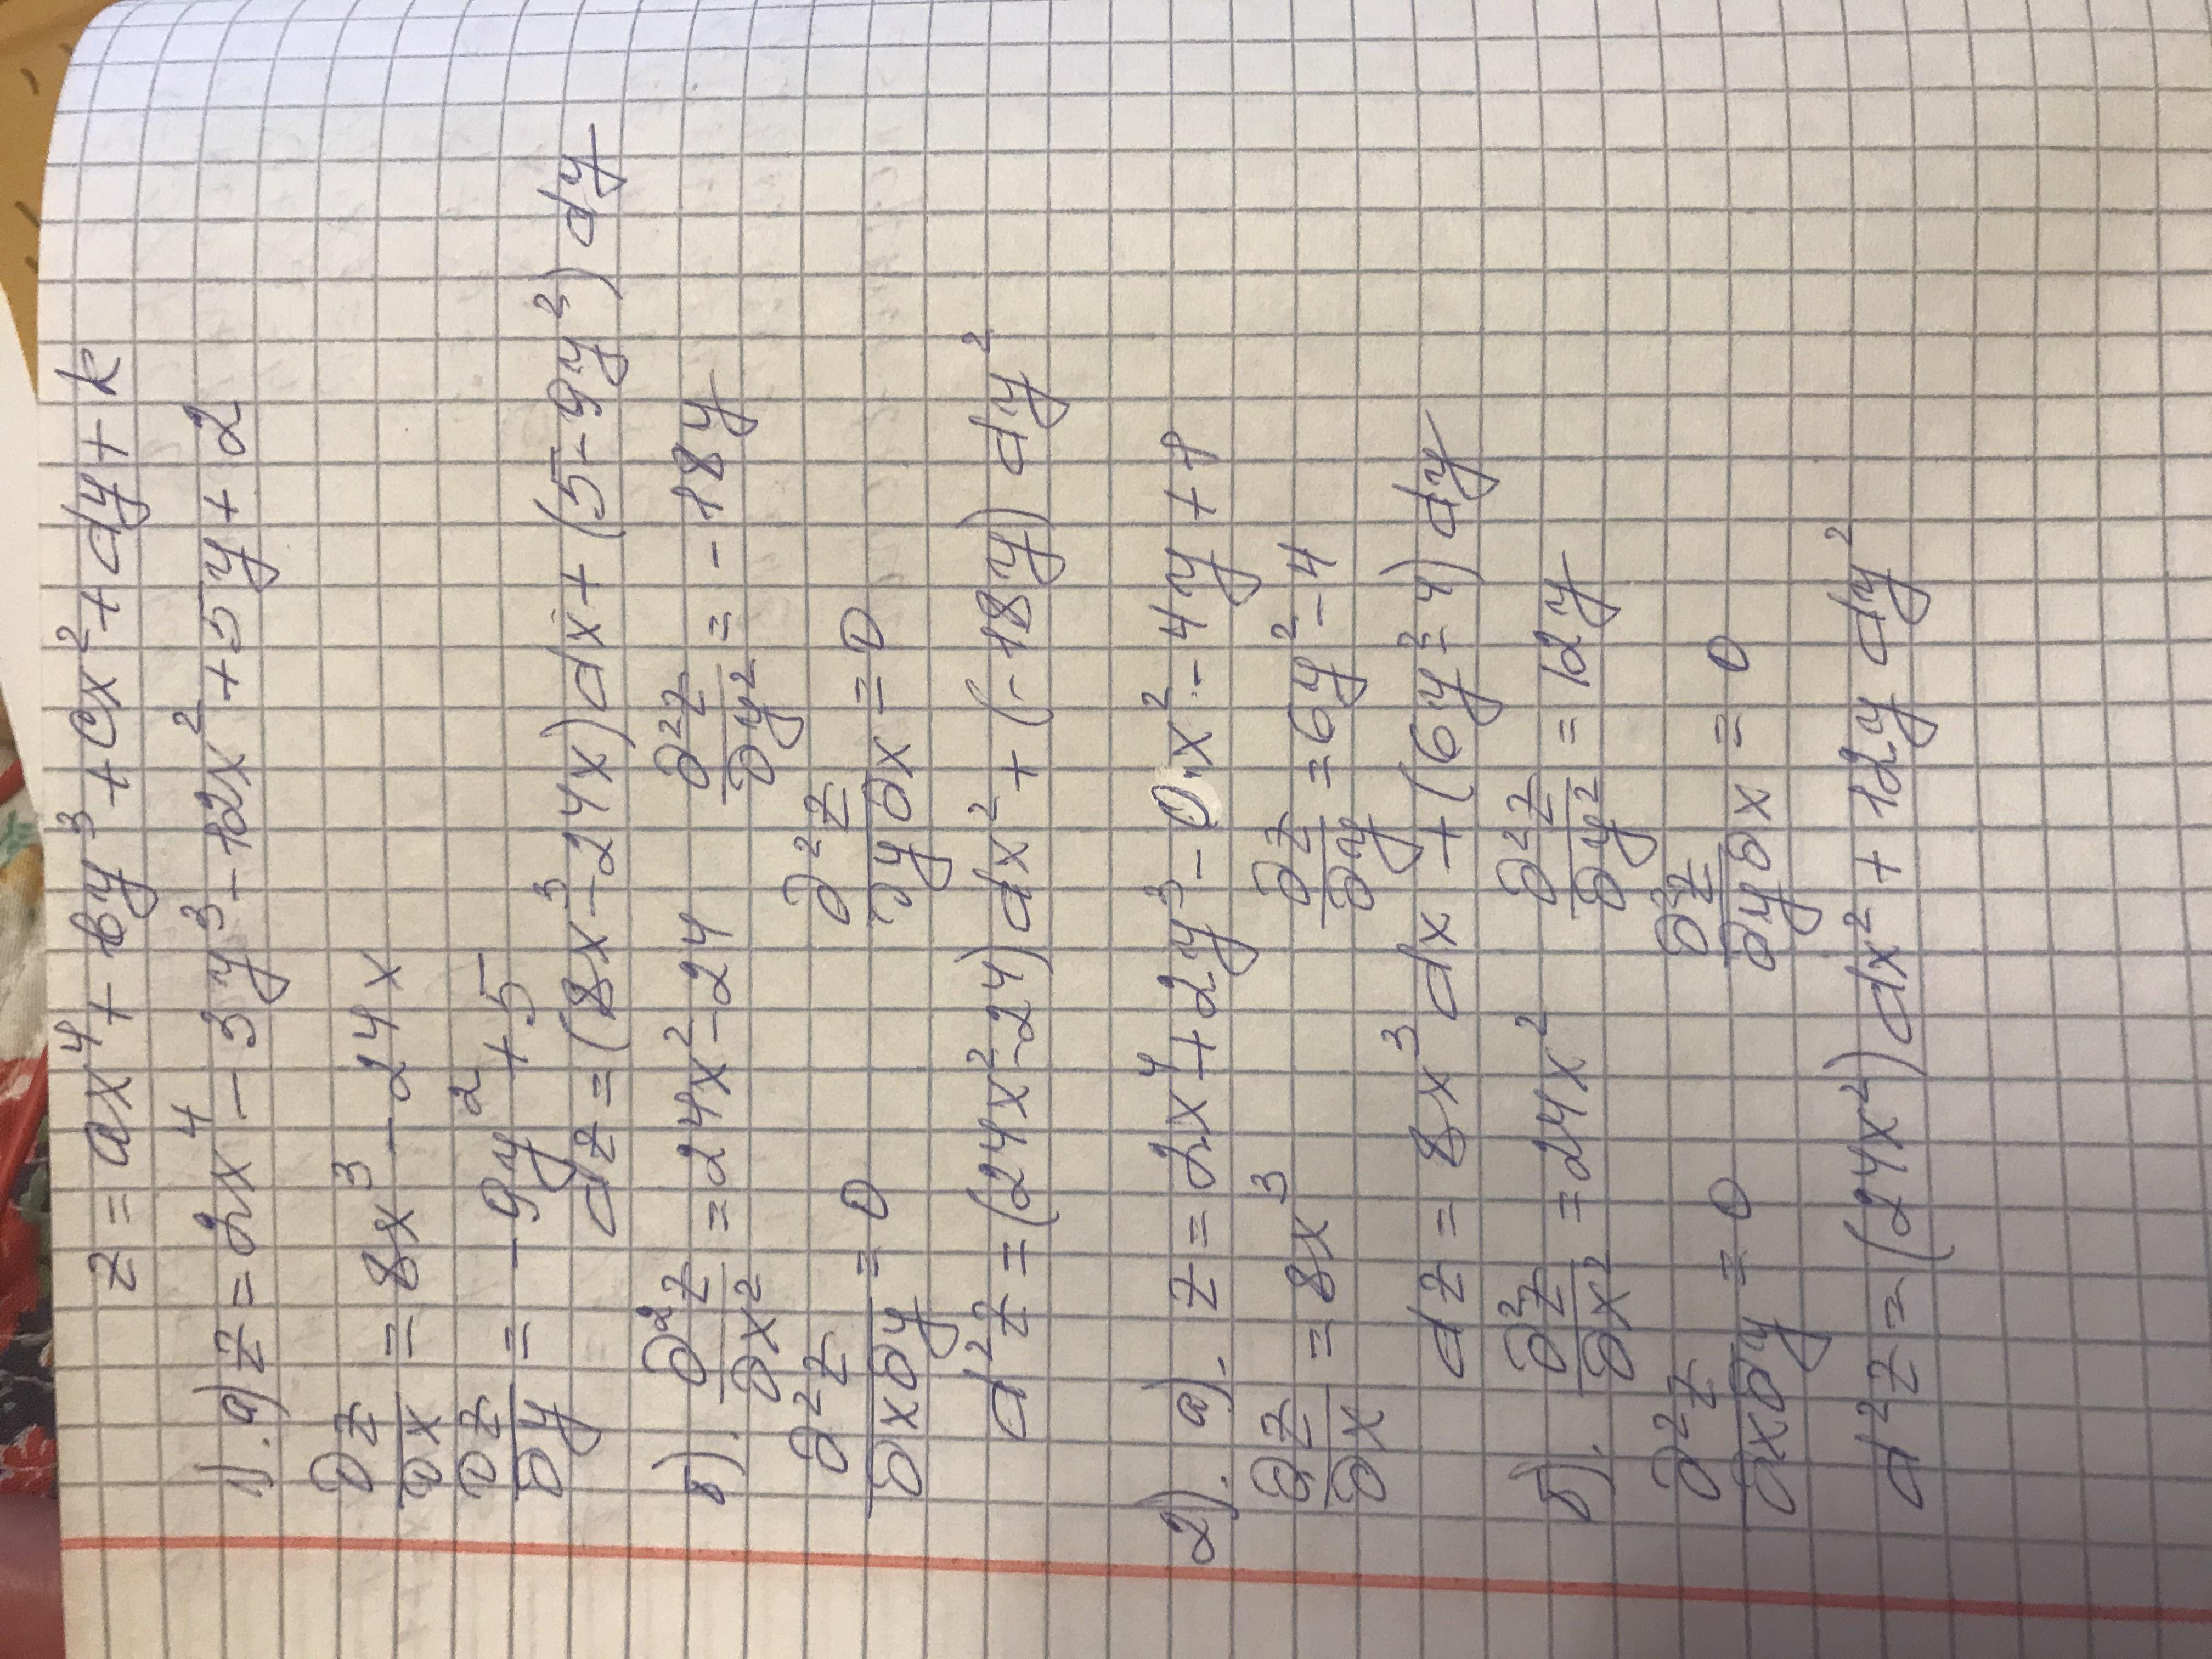 z = ax⁴ + by³ + cx² + dy + k
1). a) z = 2x⁴ - 3y³ - 12x² + 5y + 2
∂z/∂x = 8x³ - 24x
∂z/∂y = -9y² + 5
dz = (8x³ - 24x)dx + (5 - 9y²)dy
б). ∂²z/∂x² = 24x² - 24 ∂²z/∂y² = -18y
∂²z/∂x∂y = 0 ∂²z/∂y∂x = 0
d²z = (24x² - 24)dx² + (-18y)dy²
2). a). z = 2x⁴ + 2y³ - 0·x² - 4y + 8
∂z/∂x = 8x³ ∂z/∂y = 6y² - 4
dz = 8x³dx + (6y² - 4)dy
б). ∂²z/∂x² = 24x² ∂²z/∂y² = 12y
∂²z/∂x∂y = 0 ∂²z/∂y∂x = 0
d²z = (24x²)dx² + 12y dy²